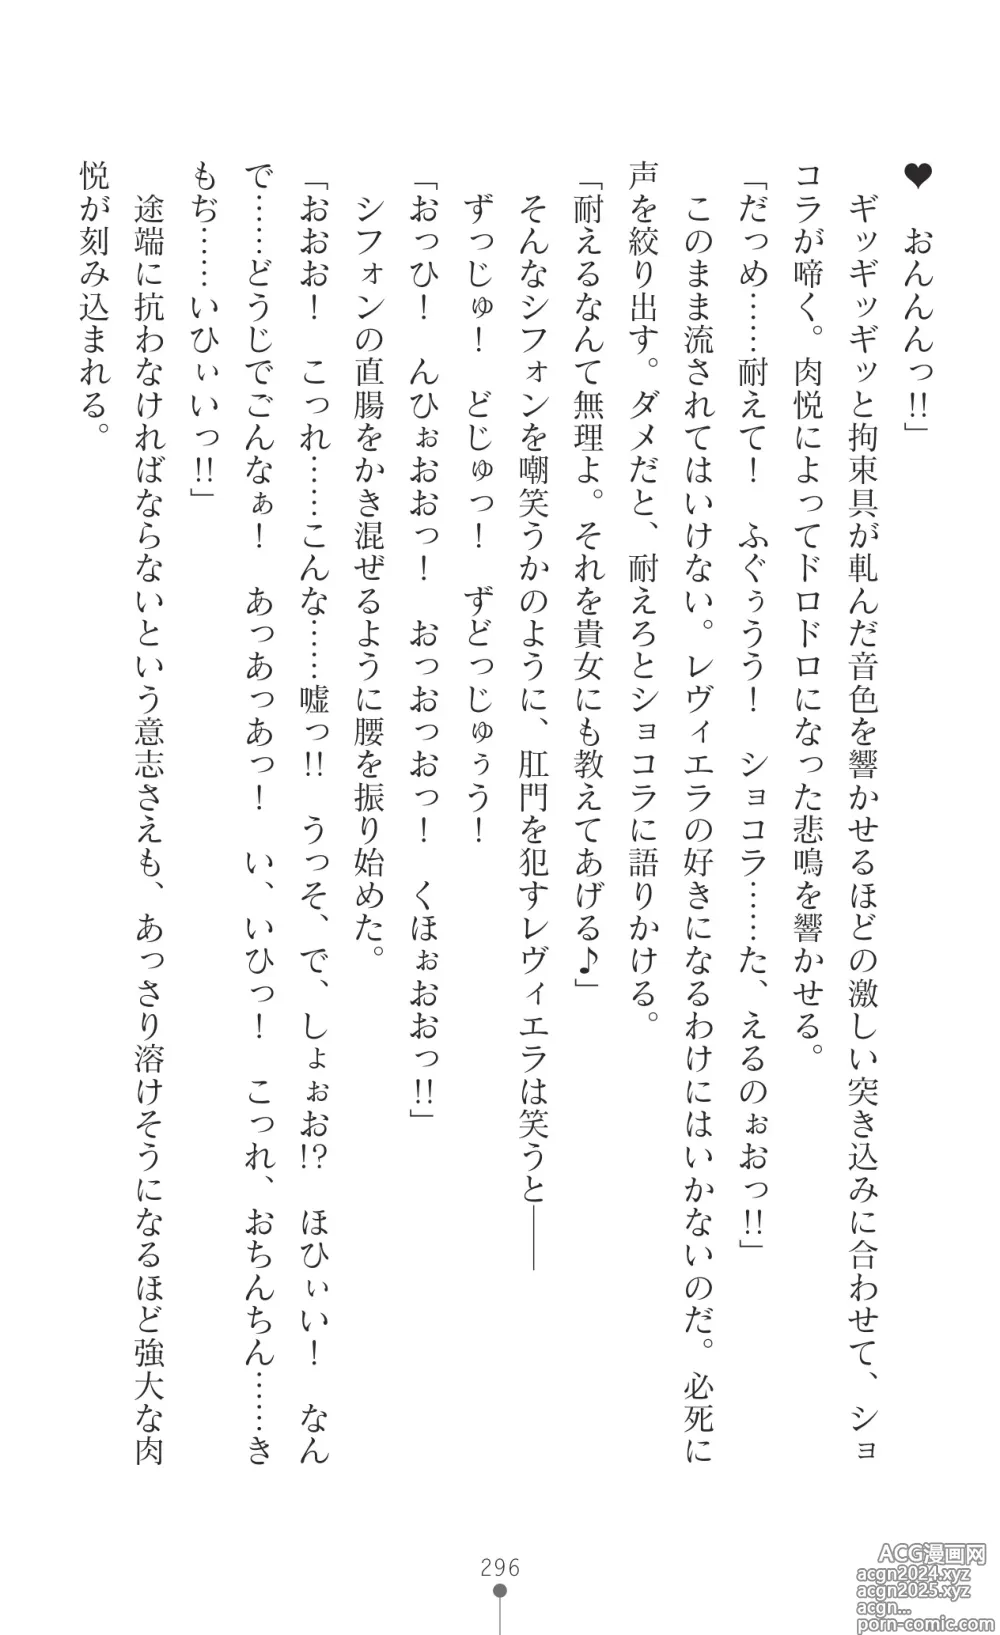 ♥　おんんんっ!!」
ギッギッギッと拘束具が軋んだ音色を響かせるほどの激しい突き込みに合わせて、ショ
コラが啼く。肉悦によってドロドロになった悲鳴を響かせる。
「だっめ……耐えて！　ふぐぅうう！　ショコラ……た、えるのぉおっ!!」
このまま流されてはいけない。レヴィエラの好きになるわけにはいかないのだ。必死に
声を絞り出す。ダメだと、耐えろとショコラに語りかける。
「耐えるなんて無理よ。それを貴女にも教えてあげる♪」
そんなシフォンを嘲笑うかのように、肛門を犯すレヴィエラは笑うと――
ずっじゅ！　どじゅっ！　ずどっじゅぅう！
「おっひ！　んひぉおおっ！　おっおっおっ！　くほぉおおっ!!」
シフォンの直腸をかき混ぜるように腰を振り始めた。
「おおお！　こっれ……こんな……嘘っ!!　うっそ、で、しょぉお!?　ほひぃい！　なん
で……どうじでごんなぁ！　あっあっあっ！　い、いひっ！　こっれ、おちんちん……き
もぢ……いひぃいっ!!」
途端に抗わなければならないという意志さえも、あっさり溶けそうになるほど強大な肉
悦が刻み込まれる。
296
ACG漫画网
acgn2024.xyz
acgn2025.xyz
acgn...
porn-comic.com